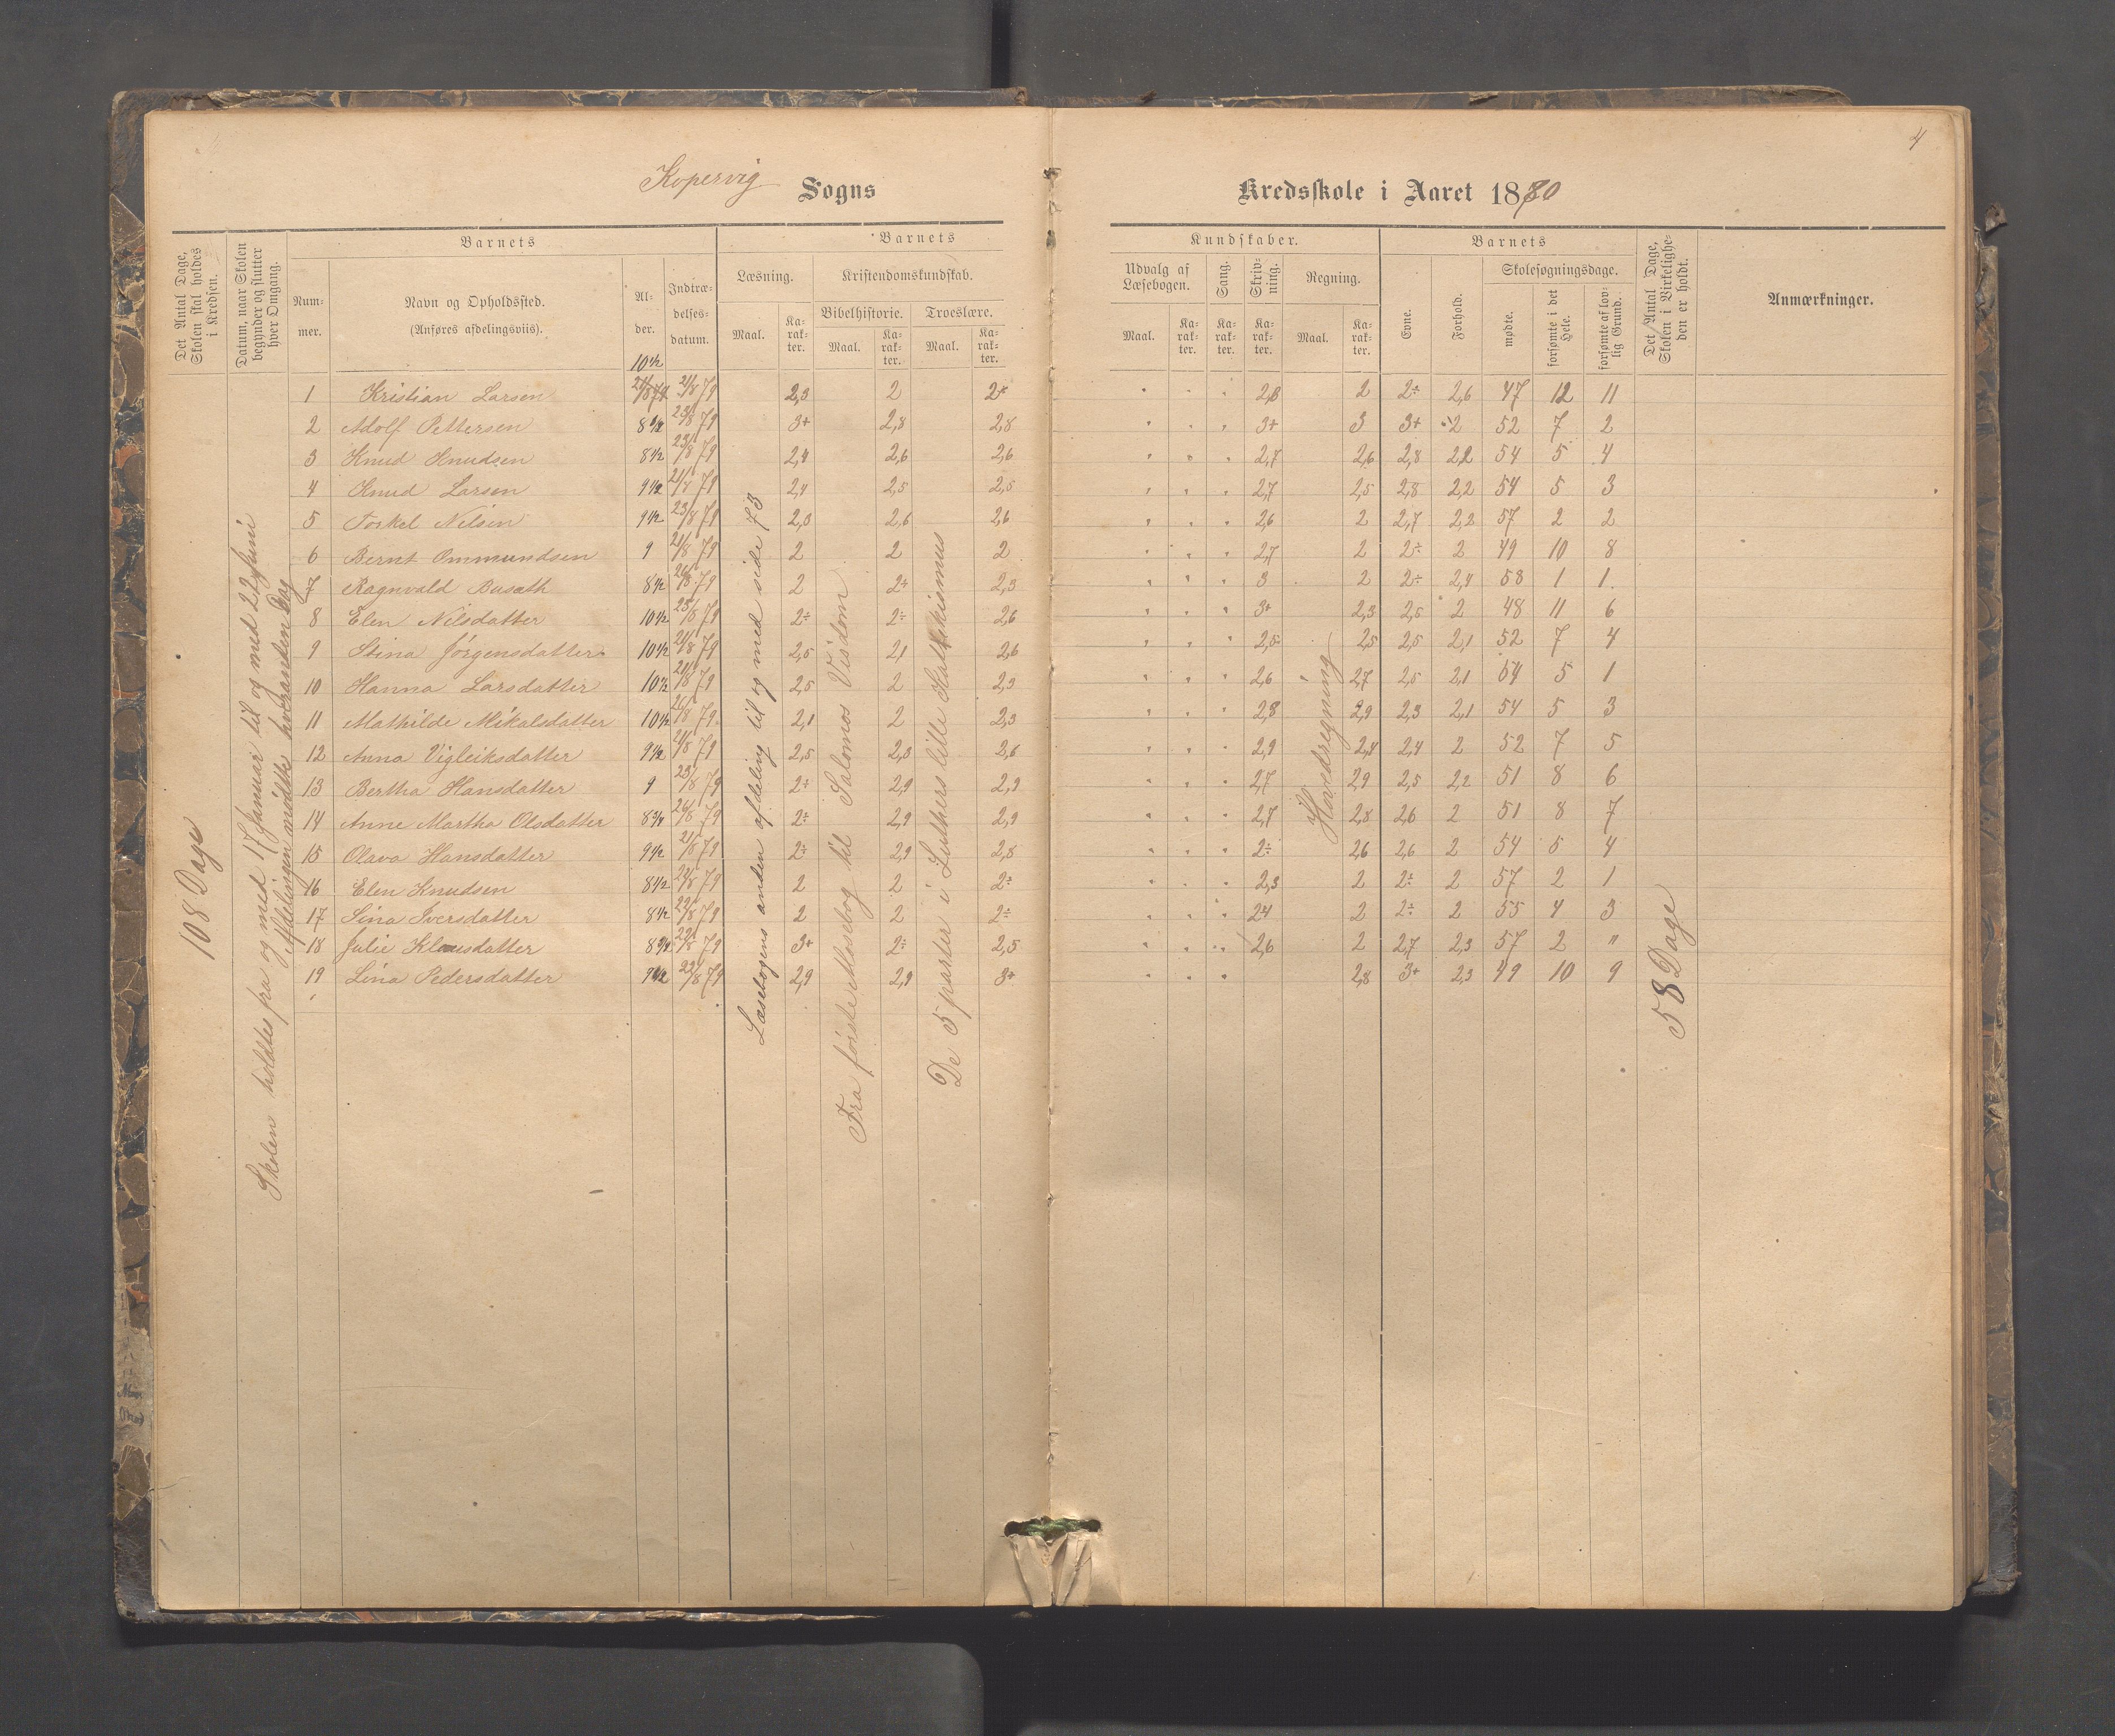 4
Kopervig Sogns Kredsskole i Aaret 1880
Det Antal Dage, Skolen skal holdes i Kredsen.
Datum, naar Skolen begynder og slutter hver Omgang.
Barnets
Num-mer.
Navn og Opholdssted.
(Anføres afdelingsviis).
Al-der.
Indtræ-delses-datum.
Barnets
Læsning.
Maal.
Ka-rak-ter.
Kristendomskundskab.
Bibelhistorie.
Maal.
Ka-rak-ter.
Troeslære.
Maal.
Ka-rak-ter.
Kundskaber.
Udvalg af Læsebogen.
Maal.
Ka-rak-ter.
Sang.
Ka-rak-ter.
Skriv-ning.
Ka-rak-ter.
Regning.
Maal.
Ka-rak-ter.
Barnets
Evne.
Forhold.
Skolesøgningsdage.
mødte.
forsømte i det Hele.
forsømte af lov-lig Grund.
Det Antal Dage, Skolen i Virkelighe-den er holdt.
Anmærkninger.
108 Dage
Skolen holdtes fra og med 17 Januar til og med 22 Juni
Afdelingen mødte hveranden Dag
Læsebogens anden afdeling til og med side 73
Fra først i Læsebog til Salomos Visdom
De 5 parter i Luthers lille Katekismus
Hovedregning
58 Dage
1 Kristian Larsen 10½ 21/8 79 2,3 2 2,8 2 2÷ 2,6 47 12 11
2 Adolf Pettersen 23/8 79 3+ 2,8 2,8 3+ 3 3+ 2 52 7 2
3 Knud Knudsen 8½ 23/8 79 2,4 2,6 2,6 2,7 2,6 2,8 2,2 54 5 4
4 Knud Larsen 9½ 21/8 79 2,4 2,5 2,5 2,7 2,5 2,8 2,2 54 5 3
5 Torkel Nilsen 9½ 23/8 79 2,3 2,6 2,6 2,6 2 2,7 2,2 57 2 2
6 Bernt Ommundsen 9 21/8 79 2 2 2 2,7 2 2÷ 2 49 10 8
7 Ragnvald Busæth 8½ 79 2 2÷ 2,3 3 2 2÷ 2,4 58 1 1
8 Elen Nilsdatter 10½ 23/8 79 2÷ 2÷ 2,6 3+ 2,3 2,5 2 48 11 6
9 Stina Jørgensdatter 10½ 21/8 79 2,5 2,1 2,6 2,5 2,5 2,5 2,1 52 7 4
10 Hanna Larsdatter 10½ 21/8 79 2,5 2 2,3 2,6 2,7 2,5 2,1 54 5 1
11 Mathilde Mikalsdatter 10½ 79 2,1 2 2,3 2,8 2,9 2,3 2,1 54 5 3
12 Anna Vigleiksdatter 9½ 21/8 79 2,5 2,3 2,6 2,9 2,4 2 52 7 5
13 Bertha Hansdatter 9 23/8 79 2÷ 2,9 2,9 2,7 2,9 2,5 2,2 51 8 6
14 Anne Martha Olsdatter 8¾ 79 2÷ 2,9 2,9 2,7 2,8 2,6 2 51 8 7
15 Olava Hansdatter 9½ 21/8 79 2÷ 2,9 2,8 2÷ 2,6 2,6 2 54 5 4
16 Elen Knudsen 8½ 79 2 2 2÷ 2,3 2 2÷ 2 57 2 1
17 Sina Iversdatter 8½ 22/8 79 2 2 2÷ 2,4 2 2÷ 2 55 4 3
18 Julie Klausdatter 8¾ 79 3+ 2÷ 2,5 2,6 2 2,7 2,3 57 2 "
19 Lina Pedersdatter 22/8 79 2,9 2,9 3+ 2,8 3+ 2,3 49 10 9